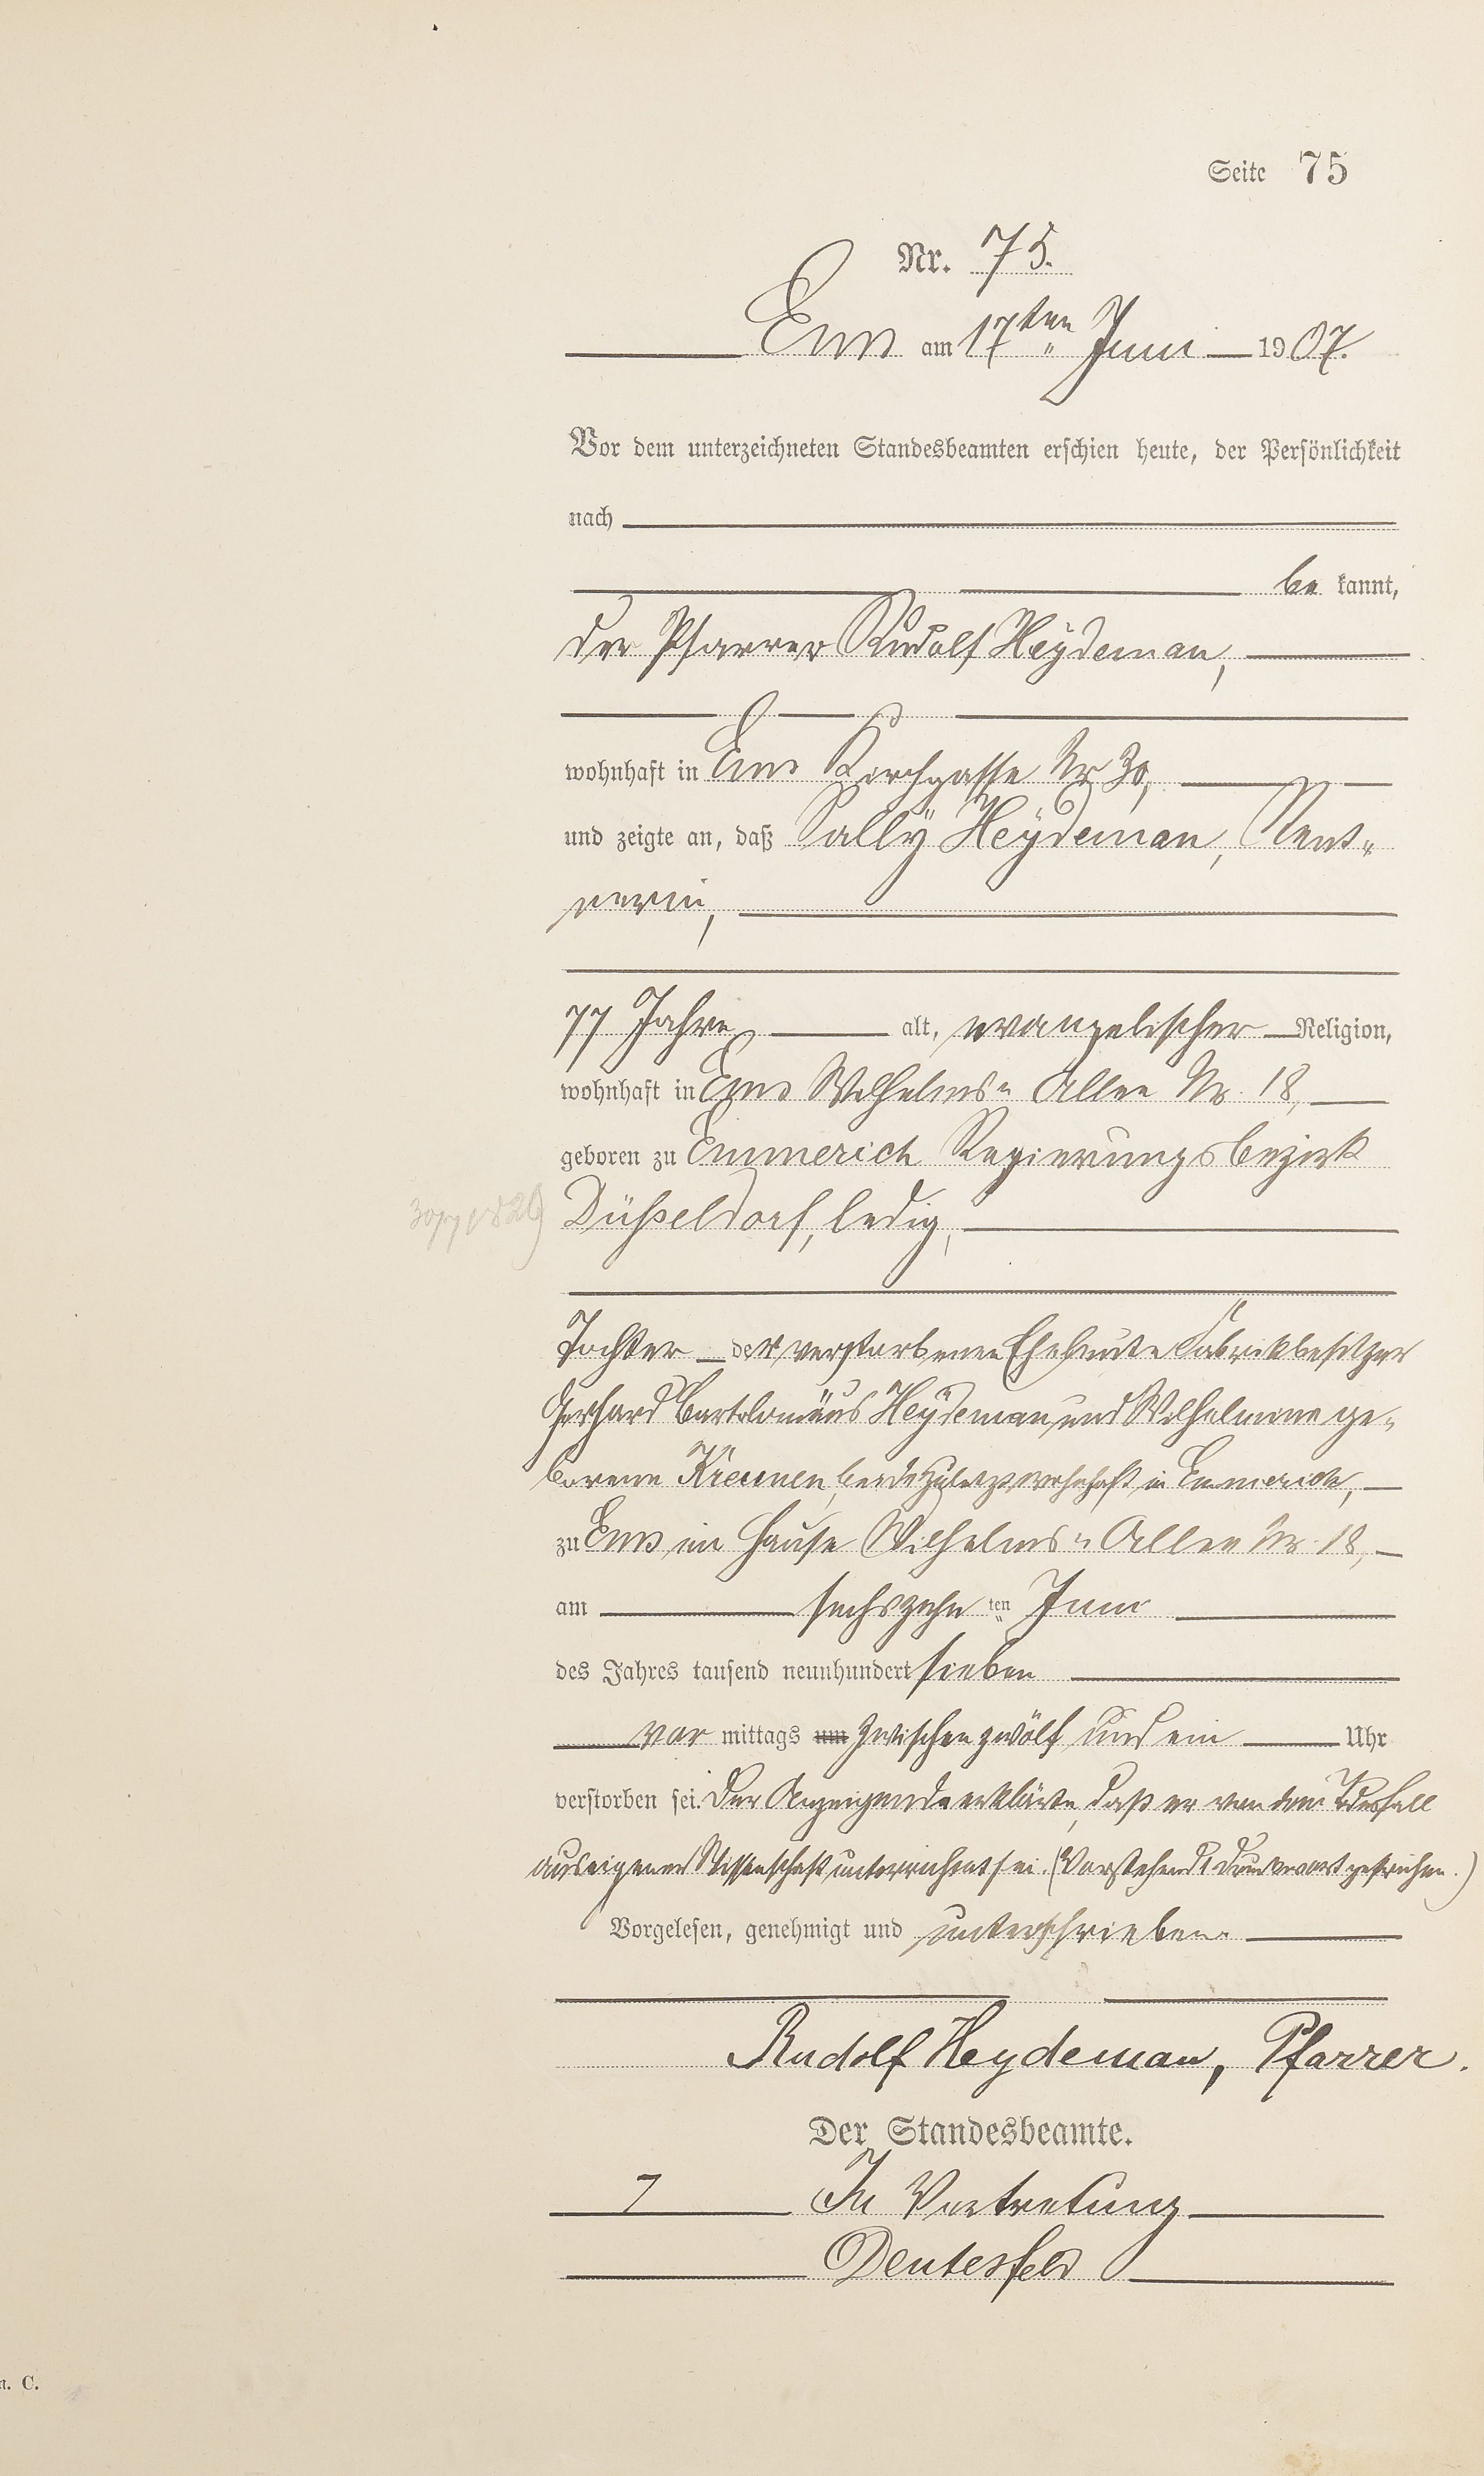 Seite 75
Nr. 75.
Ems am 17ten Juni 1907.
Vor dem unterzeichneten Standesbeamten erschien heute, der Persönlichkeit
nach
be kannt,
der Pfarrer Rudolf Heÿdeman,
wohnhaft in Ems Kirchgasse Nr 30,
und zeigte an, daß Sallÿ Heÿdeman, Rent„
nerin,
77 Jahre alt, evangelischer Religion,
wohnhaft in Ems Wilhelms„ Allee Nr. 18,
geboren zu Emmerich Regierungsbezirk
Düsseldorf, ledig,
Tochter der verstorbenen Eheleute Fabrikbesitzer
Gerhard Bartolomäus Heÿdeman und Wilhelmine ge„
borene beide zuletzt wohnhaft in Emmerich,
zu Ems im Hause Wilhelms„ Allee Nr. 18,
am sechszehn ten Juni
des Jahres tausend neunhundert sieben
vor mittags um zwischen zwölf und ein Uhr
verstorben sei. Der Anzeigende erklärte, daß er von dem Todesfall
aus eigener Wissenschaft unterrichtet sei. (Vorstehend 1 Druckwort gestrichen.)
Vorgelesen, genehmigt und unterschrieben.
Rudolf Heydeman, Pfarrer.
Der Standesbeamte.
In Vertretung
Deutesfeld
n. C.